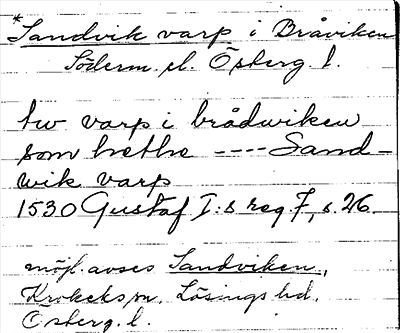 *Sandvik varp i Bråviken
Söderm. el. Österg. l.
tw varp i brådwiken
som hethe ---- Sand-
wik varp
1530 Gustaf I:s reg. 7, s. 26.
möjl. avses Sandviken,
Krokeks sn, Lösings hd,
Österg. l.